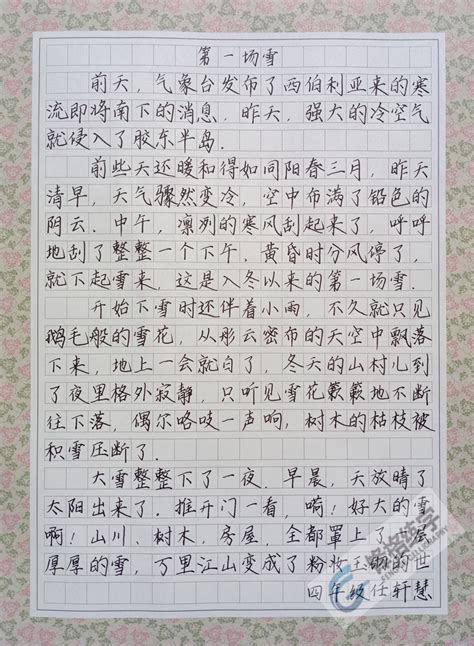 第一场雪
前天，气象台发布了西伯利亚来的寒
流即将南下的消息，昨天，强大的冷空气
就侵入了胶东半岛.
前些天还暖和得如同阳春三月，昨天
清早，天气骤然变冷，空中布满了铅色的
阴云.中午，凛冽的寒风刮起来了，呼呼
地刮了整整一个下午.黄昏时分风停了，
就下起雪来，这是入冬以来的第一场雪.
开始下雪时还伴着小雨，不久就只见
鹅毛般的雪花，从彤云密布的天空中飘落
下来，地上一会就白了，冬天的山村儿到
了夜里格外寂静，只听见雪花簌簌地不断
往下落，偶尔咯吱一声响，树木的枯枝被
积雪压断了.
大雪整整下了一夜.早晨，天放晴了
太阳出来了.推开门一看，嗬！好大的雪
啊！山川、树木，房屋，全都罩上了一层
厚厚的雪，万里江山变成了粉妆玉砌的世
四年级任轩慧